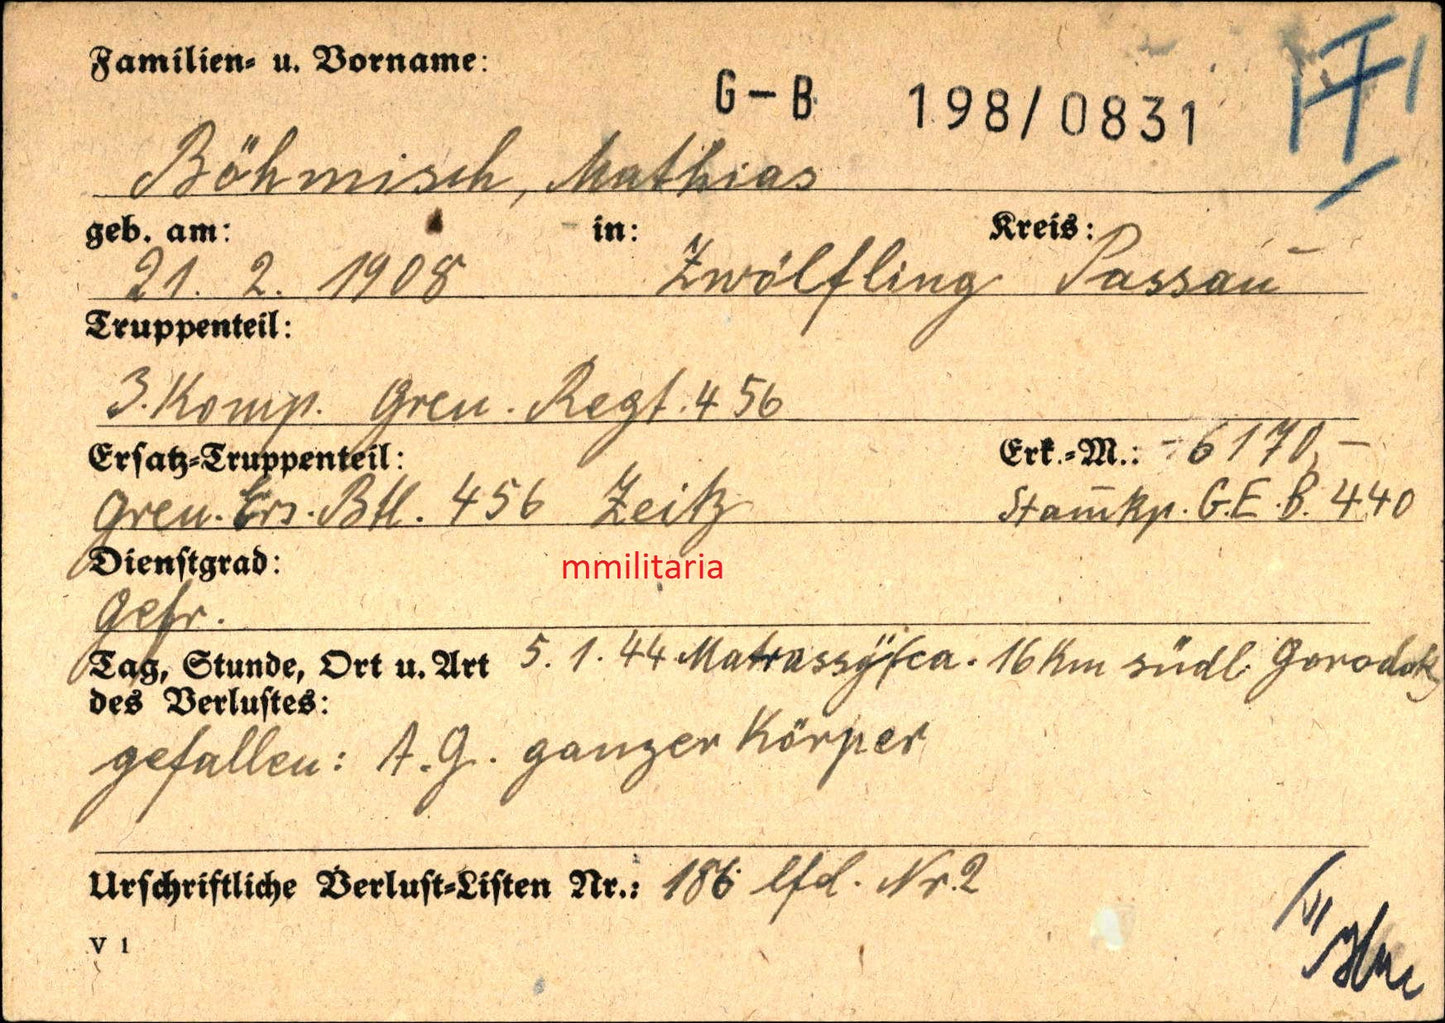 Familien- u. Vorname:
G-B 198/0831
Böhmisch, Mathias
geb. am: in: Kreis:
21. 2. 1908 Zwölfling Passau
Truppenteil:
3. Komp. Gren. Regt. 456
Ersatz-Truppenteil: Erk.-M.: - 6170 -
Gren. Ers. Btl. 456 Zeitz Stam̅kp. G.E.B. 440
Dienstgrad:
mmilitaria
Gefr.
Tag, Stunde, Ort u. Art 5. 1. 44 ca. 16 Km südl. Gorodok
des Verlustes:
gefallen: A.G. ganzer Körper
Urschriftliche Verlust-Listen Nr.: 186 lfd. Nr. 2
V 1